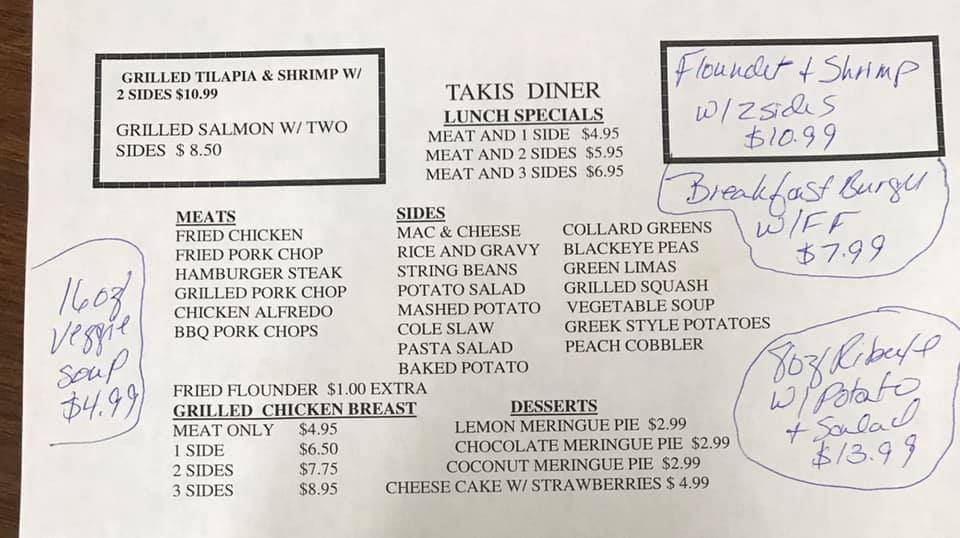 GRILLED TILAPIA & SHRIMP W/
2 SIDES $10.99
GRILLED SALMON W/ TWO
SIDES $ 8.50
TAKIS DINER
LUNCH SPECIALS
MEAT AND 1 SIDE $4.95
MEAT AND 2 SIDES $5.95
MEAT AND 3 SIDES $6.95
Flounder + Shrimp
w/ 2 sides
$10.99
Breakfast Burger
w/ FF
$7.99
MEATS
FRIED CHICKEN
FRIED PORK CHOP
HAMBURGER STEAK
GRILLED PORK CHOP
CHICKEN ALFREDO
BBQ PORK CHOPS
SIDES
MAC & CHEESE
RICE AND GRAVY
STRING BEANS
POTATO SALAD
MASHED POTATO
COLE SLAW
PASTA SALAD
BAKED POTATO
COLLARD GREENS
BLACKEYE PEAS
GREEN LIMAS
GRILLED SQUASH
VEGETABLE SOUP
GREEK STYLE POTATOES
PEACH COBBLER
16oz
Veggie
soup
$4.99
8oz Ribeye
w/ Potato
+ Salad
$13.99
FRIED FLOUNDER $1.00 EXTRA
GRILLED CHICKEN BREAST
MEAT ONLY $4.95
1 SIDE $6.50
2 SIDES $7.75
3 SIDES $8.95
DESSERTS
LEMON MERINGUE PIE $2.99
CHOCOLATE MERINGUE PIE $2.99
COCONUT MERINGUE PIE $2.99
CHEESE CAKE W/ STRAWBERRIES $ 4.99